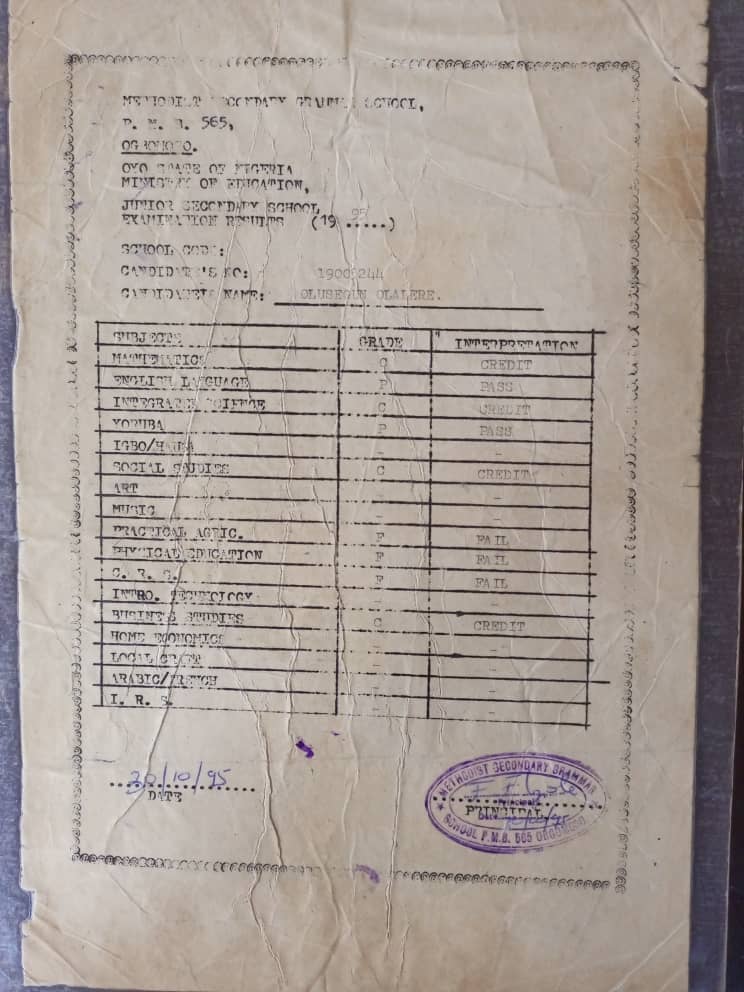 METHODIST SECONDARY GRAMMAR SCHOOL,
P. M. B. 565,
OGBOMOSO.
OYO STATE OF NIGERIA
MINISTRY OF EDUCATION,
JUNIOR SECONDARY SCHOOL
EXAMINATION RESULTS (19 95.....)
SCHOOL CODE:
CANDIDATE'S NO: 1900244
CANDIDATE'S NAME: OLUSEGUN OLALERE.
SUBJECTS GRADE INTERPRETATION
MATHEMATICS C CREDIT
ENGLISH LANGUAGE P PASS
INTEGRATED SCIENCE C CREDIT
YORUBA P PASS
IGBO/HAUSA - -
SOCIAL STUDIES C CREDIT
ART - -
MUSIC - -
PRACTICAL AGRIC. F FAIL
PHYSICAL EDUCATION F FAIL
C. R. S. F FAIL
INTRO. TECHNOLOGY - -
BUSINESS STUDIES C CREDIT
HOME ECONOMICS - -
LOCAL CRAFT - -
ARABIC/FRENCH - -
I. R. S. - -
30/10/95
DATE
METHODIST SECONDARY GRAMMAR
Principal
PRINCIPAL
SCHOOL P.M.B. 565 OGBOMOSO